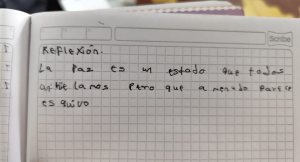 Scribe
REFLEXIÓN.
La Paz es un estado que todos
anhelamos Pero que a menudo Parece
es quivo